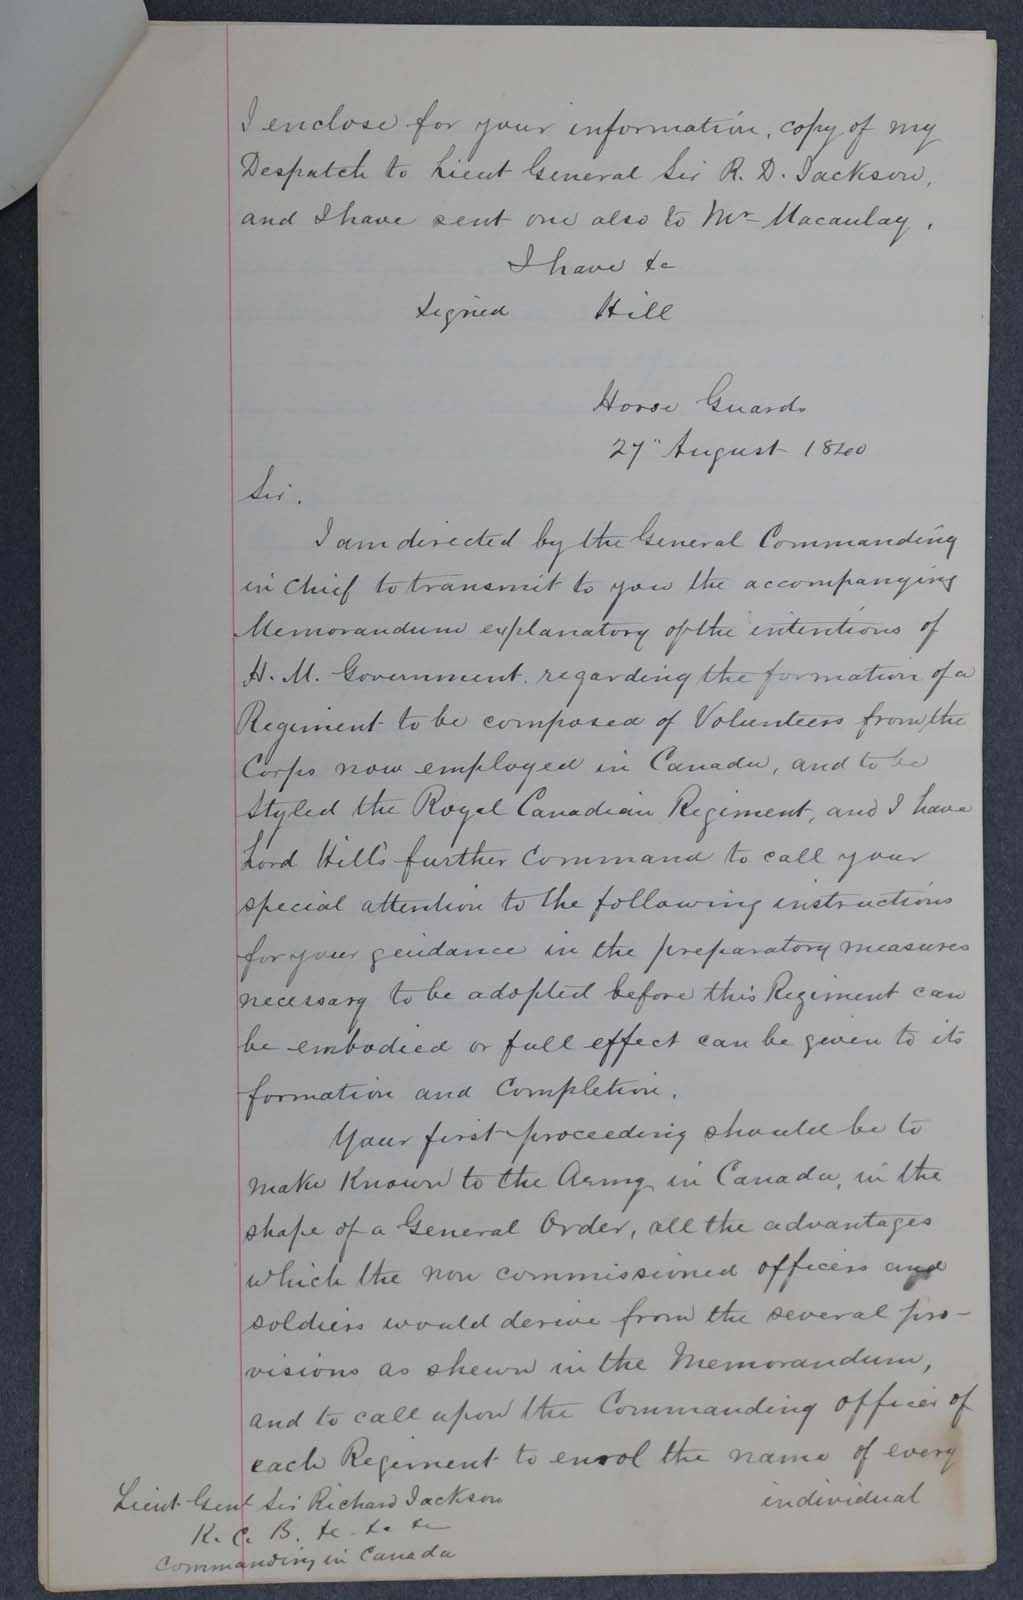 I enclose for your information, copy of my
Despatch to Lieut General Sir R. D. Jackson,
and I have sent one also to Mr Macaulay.
I have &c
Signed Hill
Horse Guards
27" August 1840
Sir.
I am directed by the General Commanding
in Chief to transmit to you the accompanying
Memorandum explanatory of the intentions of
H. M. Government. regarding the formation of a
Regiment to be composed of Volunteers from the
Corps now employed in Canada, and to be
styled the Royal Canadian Regiment, and I have
Lord Hill's further Command to call your
special attention to the following instructions
for your guidance in the preparatory measures
necessary to be adopted before this Regiment can
be embodied or full effect can be given to its
formation and Completion.
Your first proceeding should be to
make Known to the Army in Canada, in the
shape of a General Order, all the advantages
which the non commissioned officers and
soldiers would derive from the several pro-
visions as shewn in the Memorandum,
and to call upon the Commanding officer of
each Regiment to enrol the name of every
individual
Lieut Genl Sir Richard Jackson
K. C. B. &c &c &c
Commanding in Canada